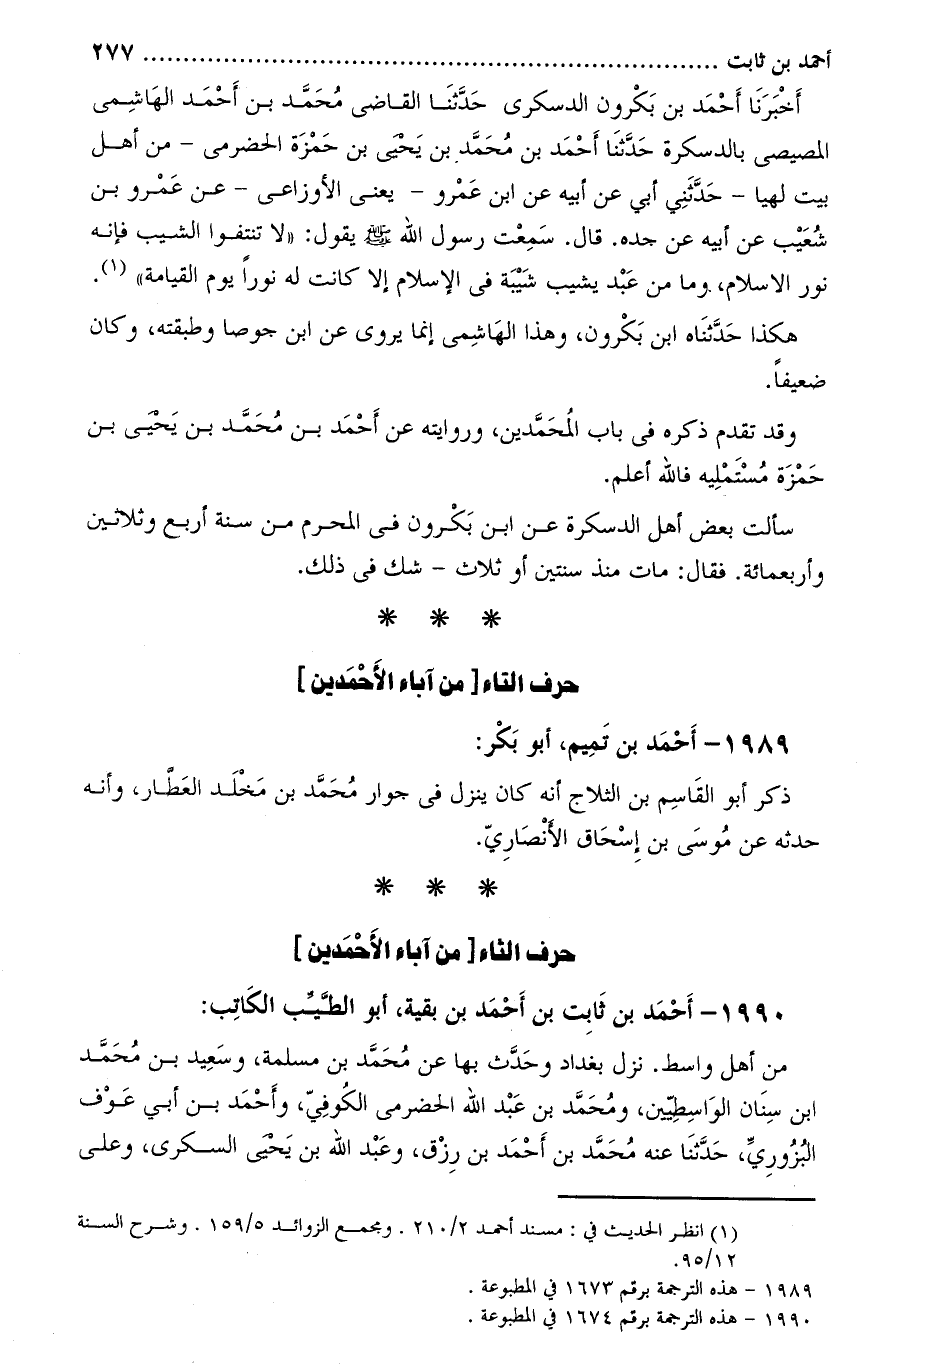 أحمد بن ثابت ........................................................................ ٢٧٧
أَخْبَرَنَا أَحْمَد بن بَكْرون الدسكرى حَدَّثَنَا القاضى مُحَمَّد بن أَحْمَد الهَاشِمى
المصيصى بالدسكرة حَدَّثَنَا أَحْمَد بن مُحَمَّد بن يَحْيَى بن حَمْزَة الحضرمى - من أهل
بيت لهيا - حَدَّثَنِي أبي عن أبيه عن ابن عَمْرو - يعنى الأوزاعى - عن عَمْرو بن
شُعَيْب عن أبيه عن جده. قال. سَمِعْت رسول الله ﷺ يقول: «لا تنتفوا الشيب فإنه
نور الاسلام، وما من عَبْد يشيب شَيْبَة فى الإسلام إلا كانت له نوراً يوم القيامة» (١).
هكذا حَدَّثَناه ابن بَكْرون، وهذا الهَاشِمى إنما يروى عن ابن جوصا وطبقته، وكان
ضعيفاً.
وقد تقدم ذكره فى باب المُحَمَّدين، وروايته عن أَحْمَد بن مُحَمَّد بن يَحْيَى بن
حَمْزَة مُسْتَمْلِيه فالله أعلم.
سألت بعض أهل الدسكرة عن ابن بَكْرون فى المحرم من سنة أربع وثلاثين
وأربعمائة. فقال: مات منذ سنتين أو ثلاث - شك فى ذلك.
* * *
حرف التاء [ من آباء الأَحْمَدين ]
١٩٨٩- أَحْمَد بن تَمِيم، أبو بَكْر:
ذكر أبو القَاسِم بن الثلاج أنه كان ينزل فى جوار مُحَمَّد بن مَخْلَد العَطَّار، وأنه
حدثه عن مُوسَى بن إِسْحَاق الأَنْصَارِيّ.
* * *
حرف الثاء [ من آباء الأَحْمَدين ]
١٩٩٠- أَحْمَد بن ثَابِت بن أَحْمَد بن بقية، أبو الطَّيِّب الكَاتِب:
من أهل واسط. نزل بغداد وحَدَّث بها عن مُحَمَّد بن مسلمة، وسَعِيد بن مُحَمَّد
ابن سِنَان الوَاسِطِيّين، ومُحَمَّد بن عَبْد الله الحضرمى الكُوفِيّ، وأَحْمَد بن أبي عَوْف
البُزُورِيِّ، حَدَّثَنا عنه مُحَمَّد بن أَحْمَد بن رِزْق، وعَبْد الله بن يَحْيَى السكرى، وعلى
(١) انظر الحديث في : مسند أحمد ٢/٢١٠ . ومجمع الزوائد ٥/١٥٩ . وشرح السنة
١٢/٩٥.
١٩٨٩ - هذه الترجمة برقم ١٦٧٣ في المطبوعة .
١٩٩٠ - هذه الترجمة برقم ١٦٧٤ في المطبوعة .